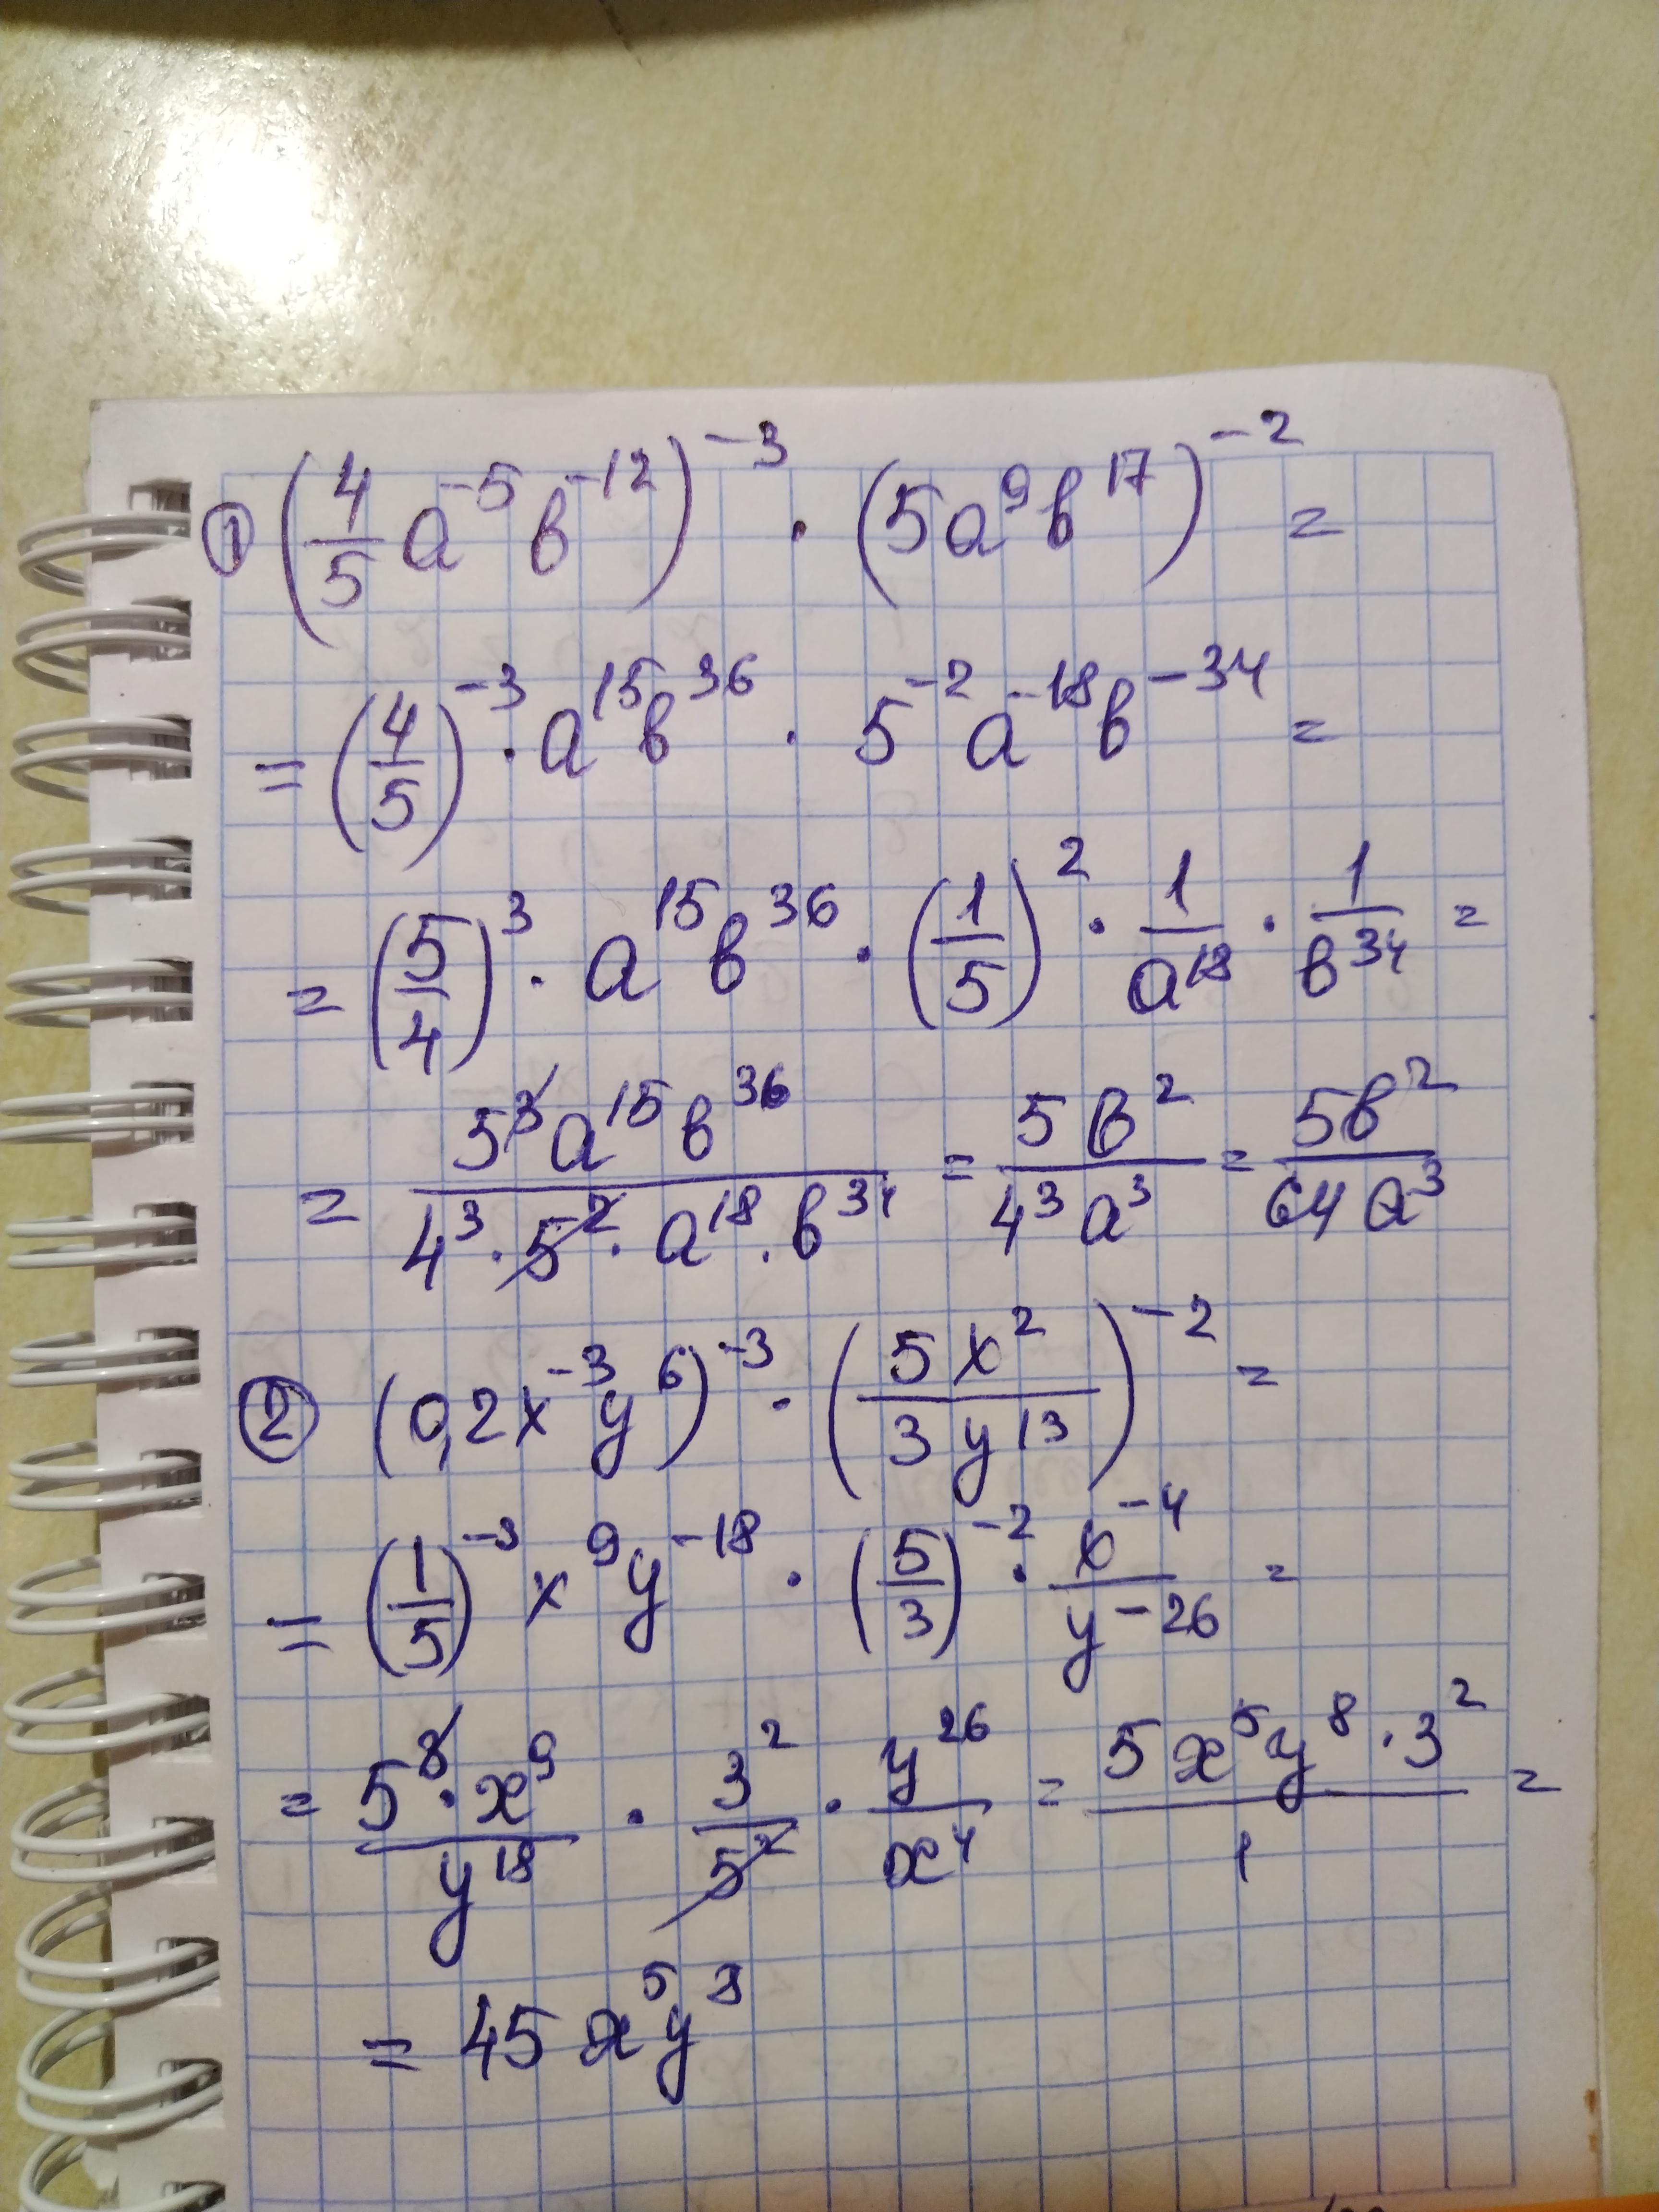 ① (4/5 a⁻⁵ b⁻¹²)⁻³ · (5a⁹b¹⁷)⁻² =
= (4/5)⁻³ · a¹⁵b³⁶ · 5⁻² a⁻¹⁸ b⁻³⁴ =
= (5/4)³ · a¹⁵ b³⁶ · (1/5)² · 1/a¹⁸ · 1/b³⁴ =
= 5³a¹⁵b³⁶ / 4³ · 5² · a¹⁸ · b³⁴ = 5b² / 4³a³ = 5b² / 64a³
② (0,2x⁻³y⁶)⁻³ · (5x² / 3y¹³)⁻² =
= (1/5)⁻³ x⁹y⁻¹⁸ · (5/3)⁻² · x⁻⁴ / y⁻²⁶ =
= 5³ · x⁹ / y¹⁸ · 3² / 5² · y²⁶ / x⁴ = 5x⁵y⁸ · 3² / 1 =
= 45x⁵y⁸